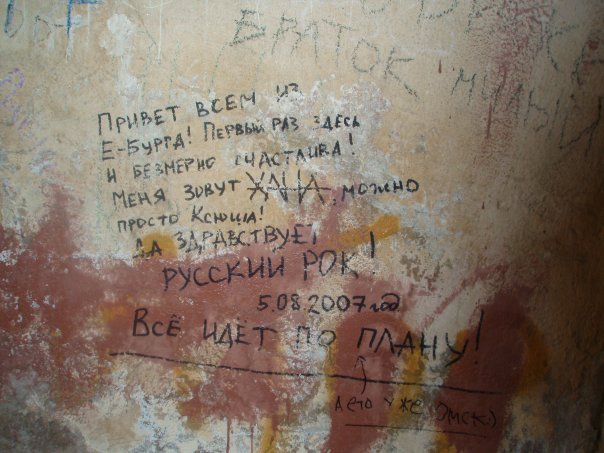 БРАТОК
МИЛЫЙ
ПРИВЕТ ВСЕМ ИЗ
Е-БУРГА! ПЕРВЫЙ РАЗ ЗДЕСЬ
И БЕЗМЕРНО СЧАСТЛИВА!
МЕНЯ ЗОВУТ ХАНА, МОЖНО
ПРОСТО КСЮША!
ДА ЗДРАВСТВУЕТ
РУССКИЙ РОК!
5.08.2007 год
ВСЁ ИДЁТ ПО ПЛАНУ!
А ЕТО УЖЕ ОМСК:)